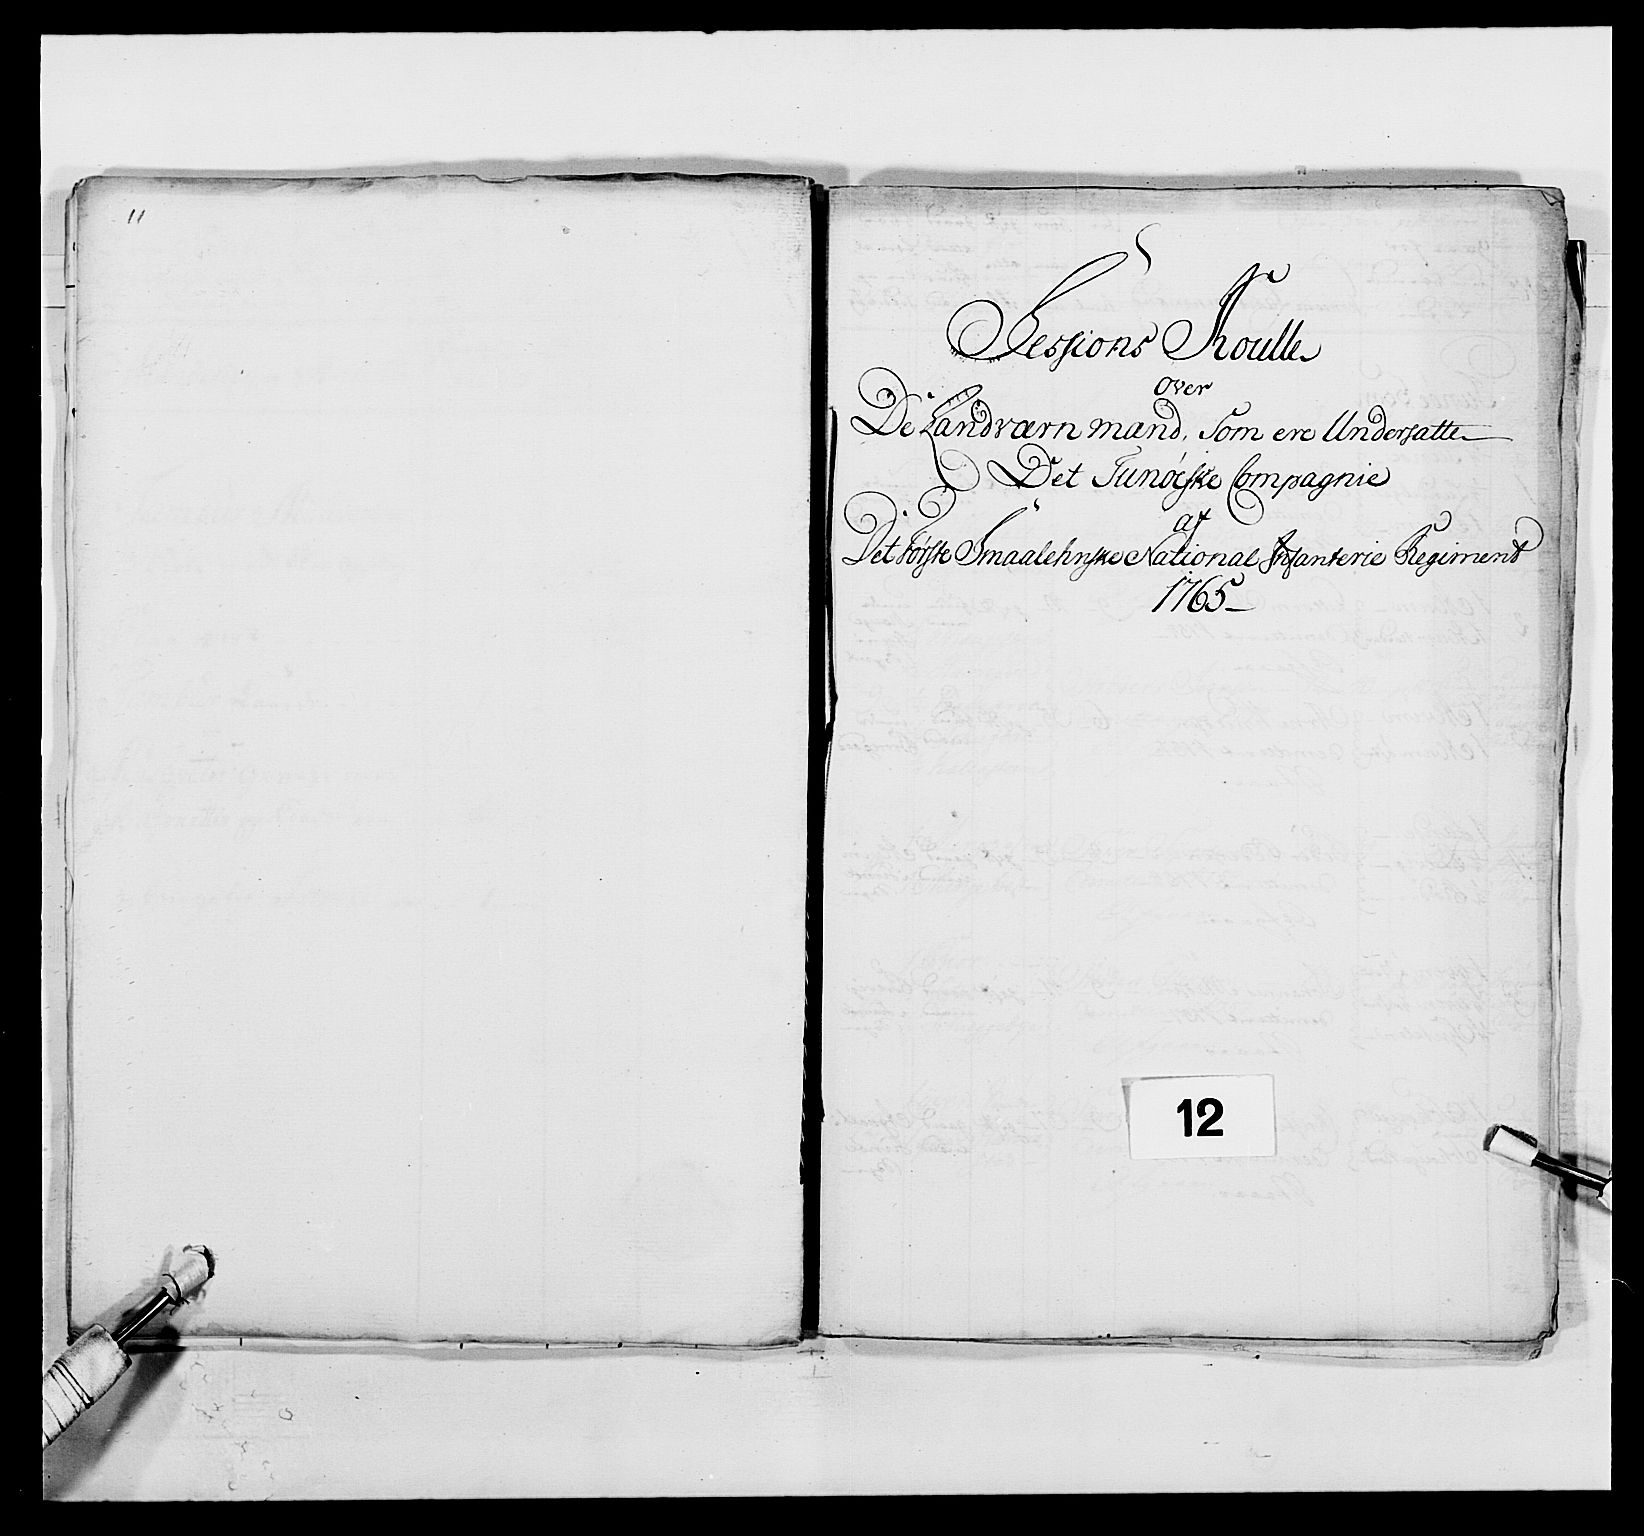 11
Sessions Roulle
over
De Landværn mænd, Som ere Undersatte
Det Tunøeske Compagnie
af
Det første Smaalehnske National Infanterie Regiment
1765
12